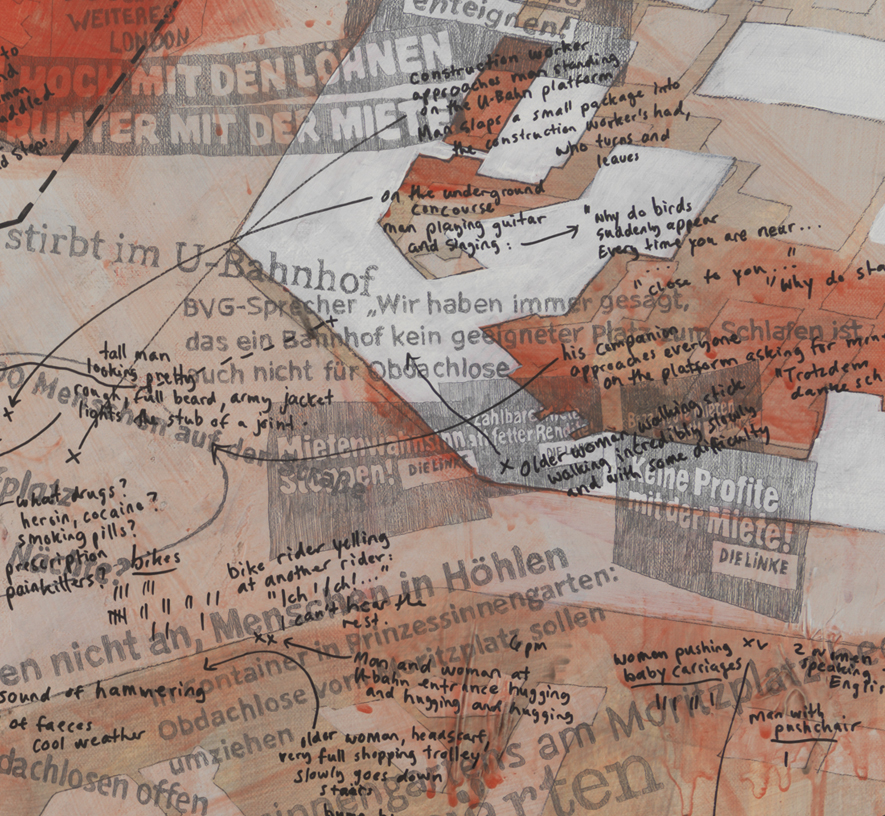 WEITERES
LONDON
enteignen!
HOCH MIT DEN LÖHNEN
RUNTER MIT DER MIETE
to
construction worker
approaches man standing
on the U-Bahn platform
Man slaps a small package into
the construction worker's had,
who turns and
leaves
steps.
on the underground
concourse
man playing guitar
and singing:
"Why do birds
suddenly appear
Every time you are near...
"....
close to you..."
"Why do sta
stirbt im U-Bahnhof
BVG-Sprecher „Wir haben immer gesagt,
das ein Bahnhof kein geeigneter Platz zum Schlafen ist
auch nicht für Obdachlose
tall man
looking pretty
rough, full beard, army jacket
lights the stub of a joint.
his companion
approaches everyone
on the platform asking for
"Trotzdem
danke sch
wo Menschen auf der
Strasse
Mietenwahnsinn
Stoppen!
DIE LINKE
zahlbare
statt fetter Rendite
older woman walking stick
walking incredibly slowly
and with some difficulty
Keine Profite
mit der Miete!
DIE LINKE
platz
what drugs?
heroin, cocaine?
smoking pills?
prescription
painkillers?
bikes
bike rider yelling
at another rider:
"Ich! Ich!..."
I can't hear the
rest.
en nicht an, Menschen in Höhlen
container in Prinzessinnengarten:
Obdachlose vom Moritzplatz sollen
umziehen
6pm
Man and woman at
U-bahn entrance hugging
and hugging and hugging
sound of hammering
of faeces
cool weather
older woman, headscarf,
very full shopping trolley
slowly goes down
stairs
women pushing
baby carriages
2 women
speaking
Englis
Men with
pushchair
dachlosen offen
innengartens am Moritzplatz
arten